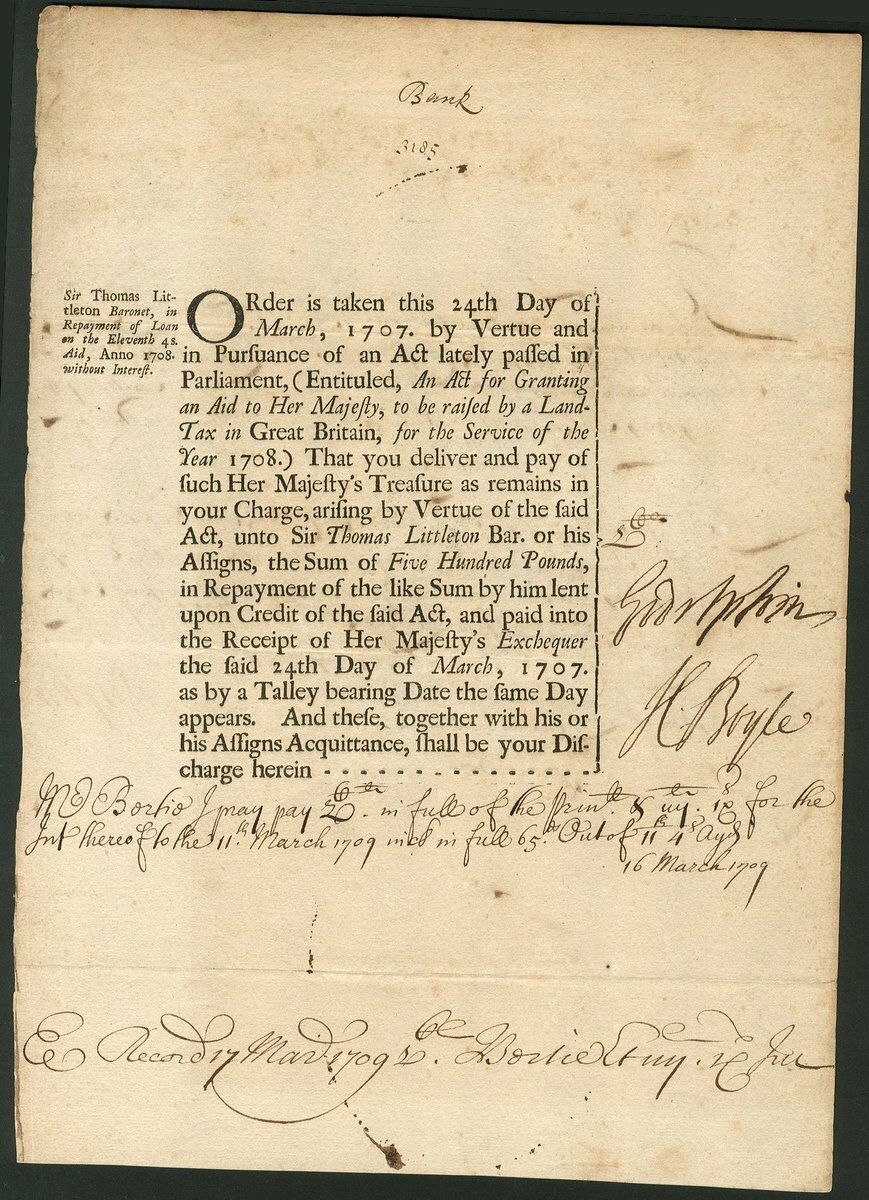 Bank
3185
Sir Thomas Lit-
tleton Baronet, in
Repayment of Loan
on the Eleventh 4s.
Aid, Anno 1708.
without Interest.
ORder is taken this 24th Day of
March, 1707. by Vertue and
in Pursuance of an Act lately passed in
Parliament, (Entituled, An Act for Granting
an Aid to Her Majesty, to be raised by a Land-
Tax in Great Britain, for the Service of the
Year 1708.) That you deliver and pay of
such Her Majesty's Treasure as remains in
your Charge, arising by Vertue of the said
Act, unto Sir Thomas Littleton Bar. or his
Assigns, the Sum of Five Hundred Pounds,
in Repayment of the like Sum by him lent
upon Credit of the said Act, and paid into
the Receipt of Her Majesty's Exchequer
the said 24th Day of March, 1707.
as by a Talley bearing Date the same Day
appears. And these, together with his or
his Assigns Acquittance, shall be your Dis-
charge herein
Godolphin
H. Boyle
Mr Bertie I pray pay in full of the for the
Int thereof to the 11th March 1709 in full 65 Out of 11th 4s Ayd
16 March 1709
Record 17 1709 Bertie